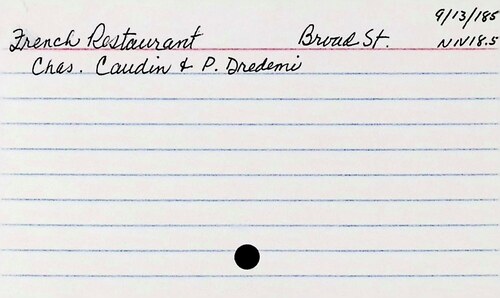 9/13/185
French Restaurant Broad St. NN18.5
Chas. Caudin & P. Dredemi